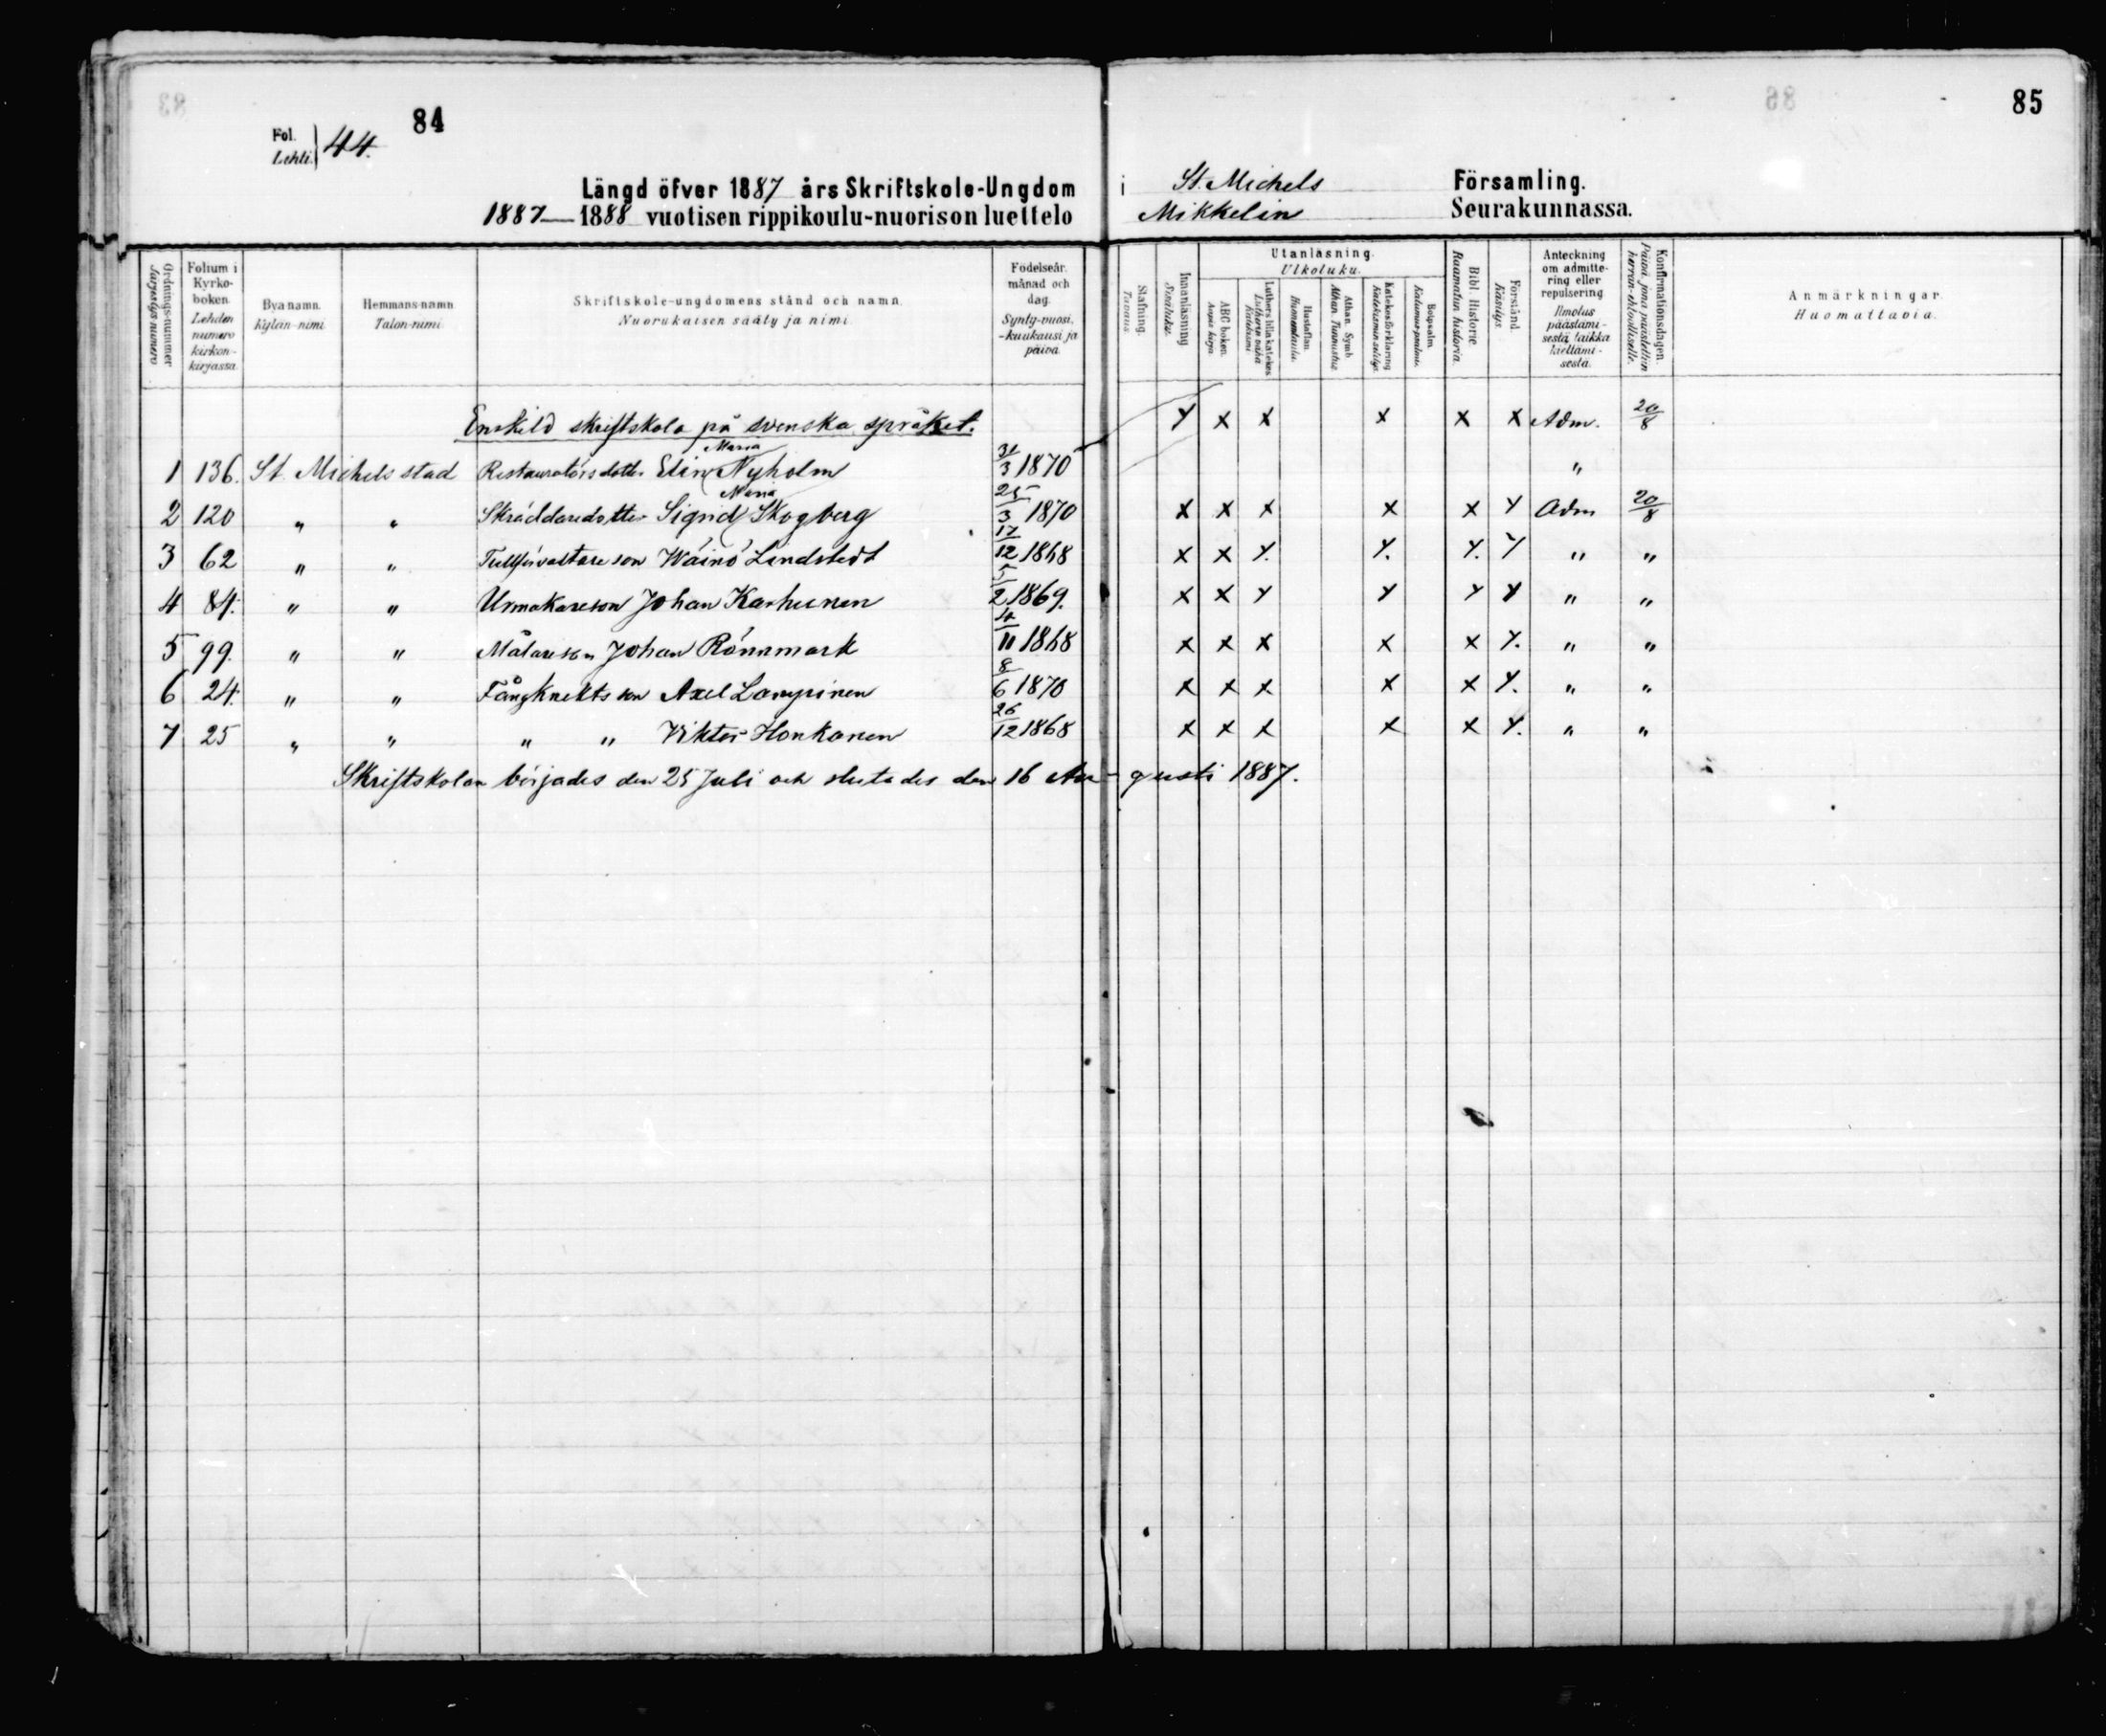 84
85
Fol. Lehti. 44.
Längd öfver 1887 års Skriftskole-Ungdom i St. Michels Församling.
1887–1888 vuotisen rippikoulu-nuorison luettelo Mikkelin Seurakunnassa.
Ordnings-nummer Järjestys-numero
Folium i Kyrko-boken. Lehden numero kirkon-kirjassa.
Bya namn. Kylän-nimi
Hemmans-namn Talon-nimi
Skriftskole-ungdomens stånd och namn. Nuorukaisen sääty ja nimi.
Födelseår, månad och dag. Synty-vuosi, -kuukausi ja päivä
Stafning. Tavaus.
Innanläsning Sisäluku.
Utanläsning. Ulkoluku.
ABC boken. Aapis kirja.
Luthers lilla katekes Lutherin vähä Katekismi
Hustaflan. Huoneentaulu.
Athan. Symb. Athan. Tunnustus.
Katekesförklaring Katekismin selitys.
Botpsalm. Katumus-psalmi.
Bibl. Historie Raamatun historia.
Förstånd Käsitys.
Anteckning om admitte-ring eller repulsering. Ilmotus päästämi-sestä taikka kieltämi-sestä.
Konfirmationsdagen. Päivä, jona päästettiin herran-ehtoolliselle.
Anmärkningar. Huomattavia.
Enskild skriftskola på svenska språket. x x x x x x Adm. 20/8
1 136. St. Michels stad Restauratörsdotter Elin Maria Nyholm 31/3 1870 "
2 120 " " Skräddaredotter Sigrid Maria Skogberg 25/3 1870 x x x x x x Adm 20/8
3 62 " " Tullförvaltareson Wäinö Lindstedt 17/12 1868 x x x. x. x. x " "
4 84. " " Urmakareson Johan Karhunen 5/2 1869. x x x x x x " "
5 99. " " Målareson Johan Rönnmark 4/11 1868 x x x x x x. " "
6 24. " " Fångknektsson Axel Lampinen 8/6 1870 x x x x x x. " "
7 25 " " " " Viktor Honkanen 26/12 1868 x x x x x x. " "
Skriftskolan börjades den 25 Juli och slutades den 16 Au-gusti 1887.